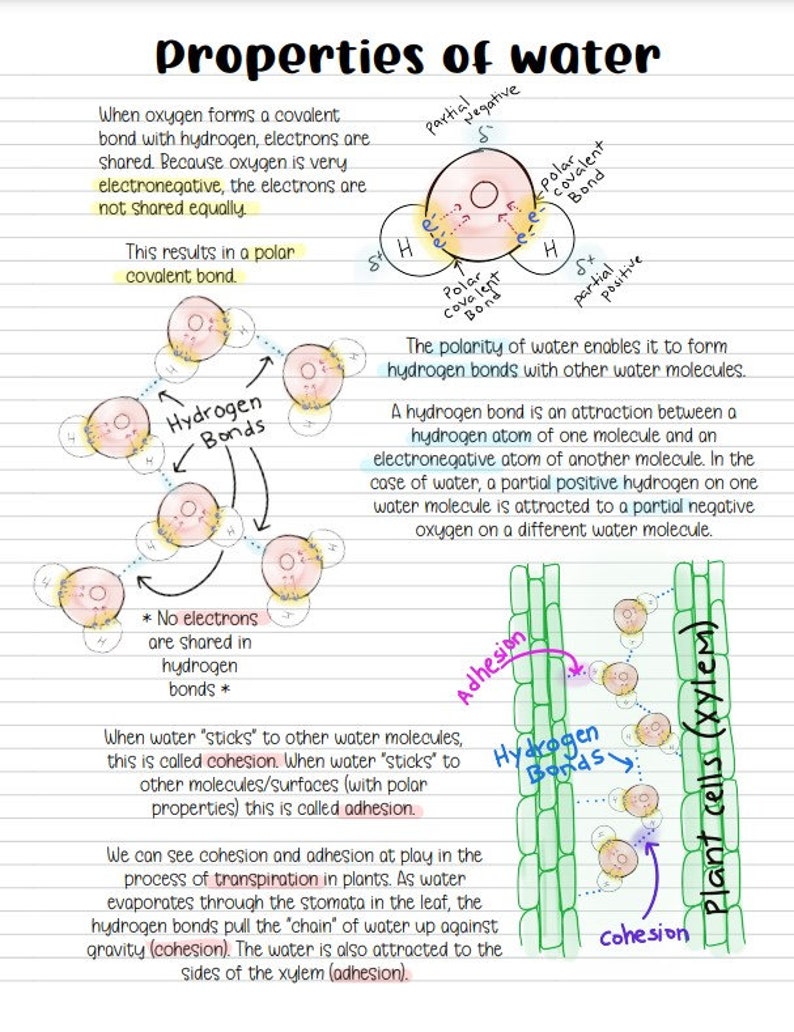 Properties of water
When oxygen forms a covalent
bond with hydrogen, electrons are
shared. Because oxygen is very
electronegative, the electrons are
not shared equally.
This results in a polar
covalent bond.
partial
Negative
δ-
polar
covalent
Bond
O
e-
e-
e-
e-
H
H
δ+
δ+
partial
positive
Polar
covalent
Bond
Hydrogen
Bonds
The polarity of water enables it to form
hydrogen bonds with other water molecules.
A hydrogen bond is an attraction between a
hydrogen atom of one molecule and an
electronegative atom of another molecule. In the
case of water, a partial positive hydrogen on one
water molecule is attracted to a partial negative
oxygen on a different water molecule.
* No electrons
are shared in
hydrogen
bonds *
When water "sticks" to other water molecules,
this is called cohesion. When water "sticks" to
other molecules/surfaces (with polar
properties) this is called adhesion.
We can see cohesion and adhesion at play in the
process of transpiration in plants. As water
evaporates through the stomata in the leaf, the
hydrogen bonds pull the "chain" of water up against
gravity (cohesion). The water is also attracted to the
sides of the xylem (adhesion).
Adhesion
Hydrogen
Bonds
Cohesion
Plant cells (xylem)